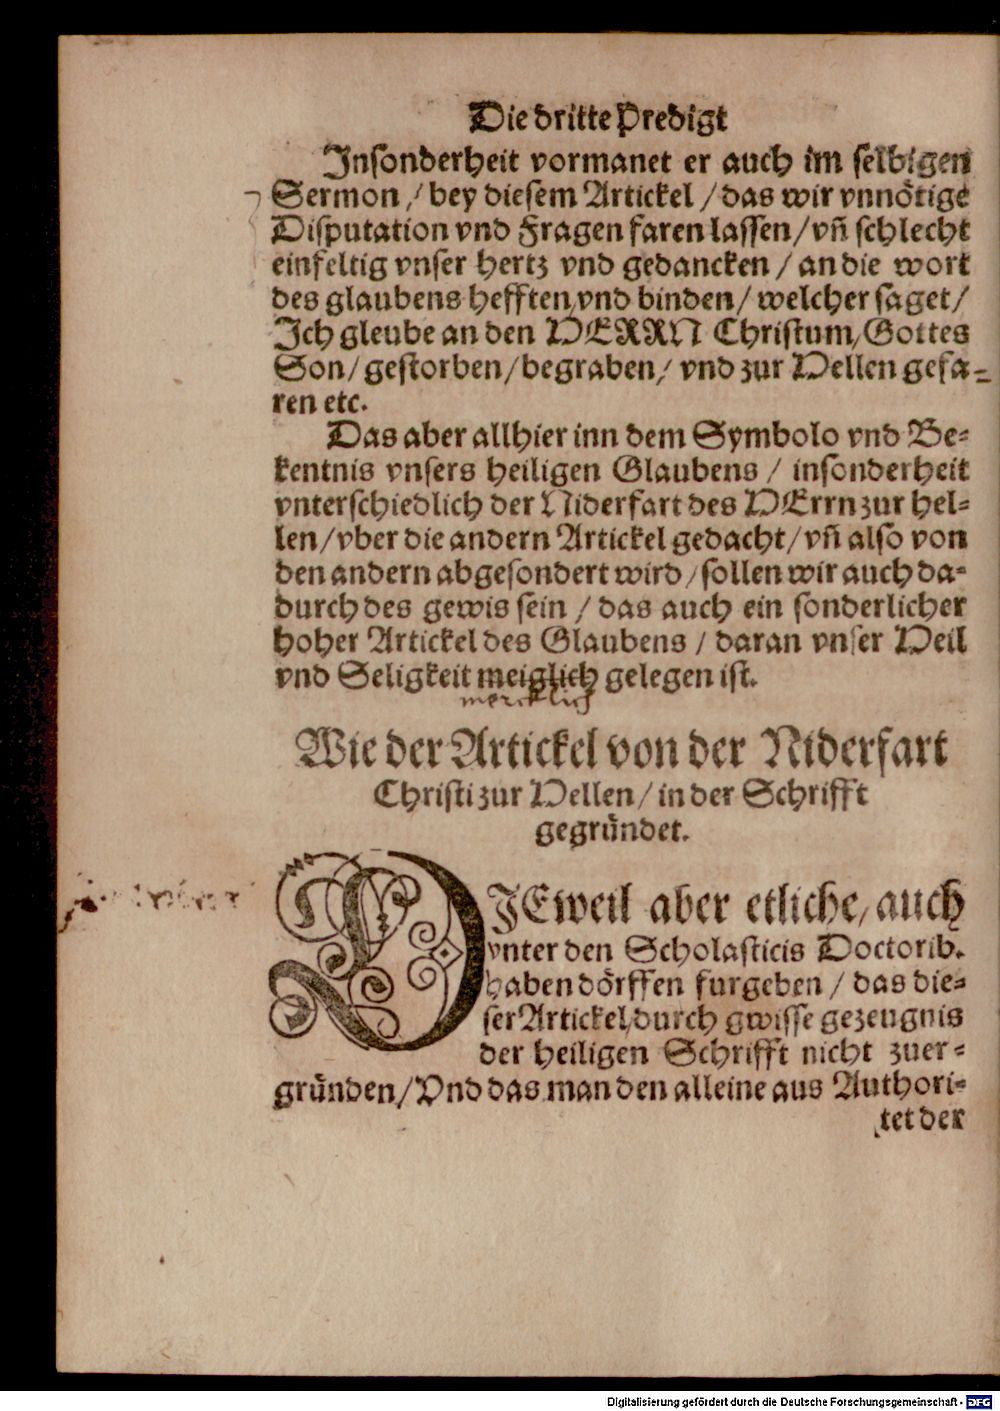 Die dritte Predigt
Insonderheit vormanet er auch im selbigen
Sermon / bey diesem Artickel / das wir vnnötige
Disputation vnd Fragen faren lassen / vñ schlecht
einfeltig vnser hertz vnd gedancken / an die wort
des glaubens hefften vnd binden / welcher saget /
Ich gleube an den HERRN Christum / Gottes
Son / gestorben / begraben / vnd zur Hellen gefa-
ren etc.
Das aber allhier inn dem Symbolo vnd Be-
kentnis vnsers heiligen Glaubens / insonderheit
vnterschiedlich der Niderfart des HErrn zur hel-
len / vber die andern Artickel gedacht / vñ also von
den andern abgesondert wird / sollen wir auch da-
durch des gewis sein / das auch ein sonderlicher
hoher Artickel des Glaubens / daran vnser Heil
vnd Seligkeit meiglich gelegen ist.
mercklich
Wie der Artickel von der Niderfart
Christi zur Hellen / in der Schrifft
gegründet.
DIEweil aber etliche / auch
vnter den Scholasticis Doctorib.
haben dörffen furgeben / das die-
ser Artickel / durch gwisse gezeugnis
der heiligen Schrifft nicht zuer-
gründen / Vnd das man den alleine aus Authori-
tet der
Digitalisierung gefördert durch die Deutsche Forschungsgemeinschaft - DFG